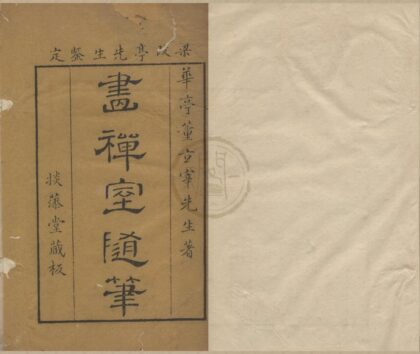 梁改亭先生鑒定
華亭董玄宰先生著
畫禪室隨筆
掞藻堂藏板